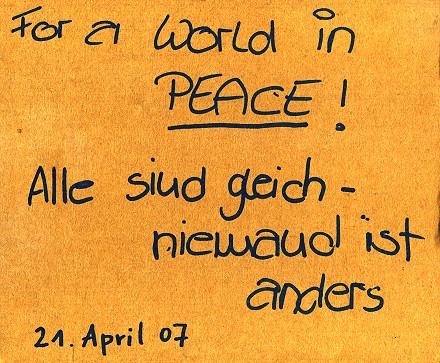 For a World in
PEACE!
Alle sind gleich -
niemand ist
anders
21. April 07